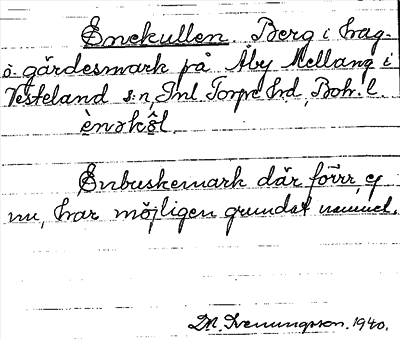 Enekullen. Berg i hag-
o. gärdesmark på Åby Mellang i
Vesteland s:n, Inl. Torpe hd, Boh. l.
ènəkə̂l

Enbuskemark där förr, ej
nu, har möjligen grundat namnet.

M. Svenungsson. 1940.